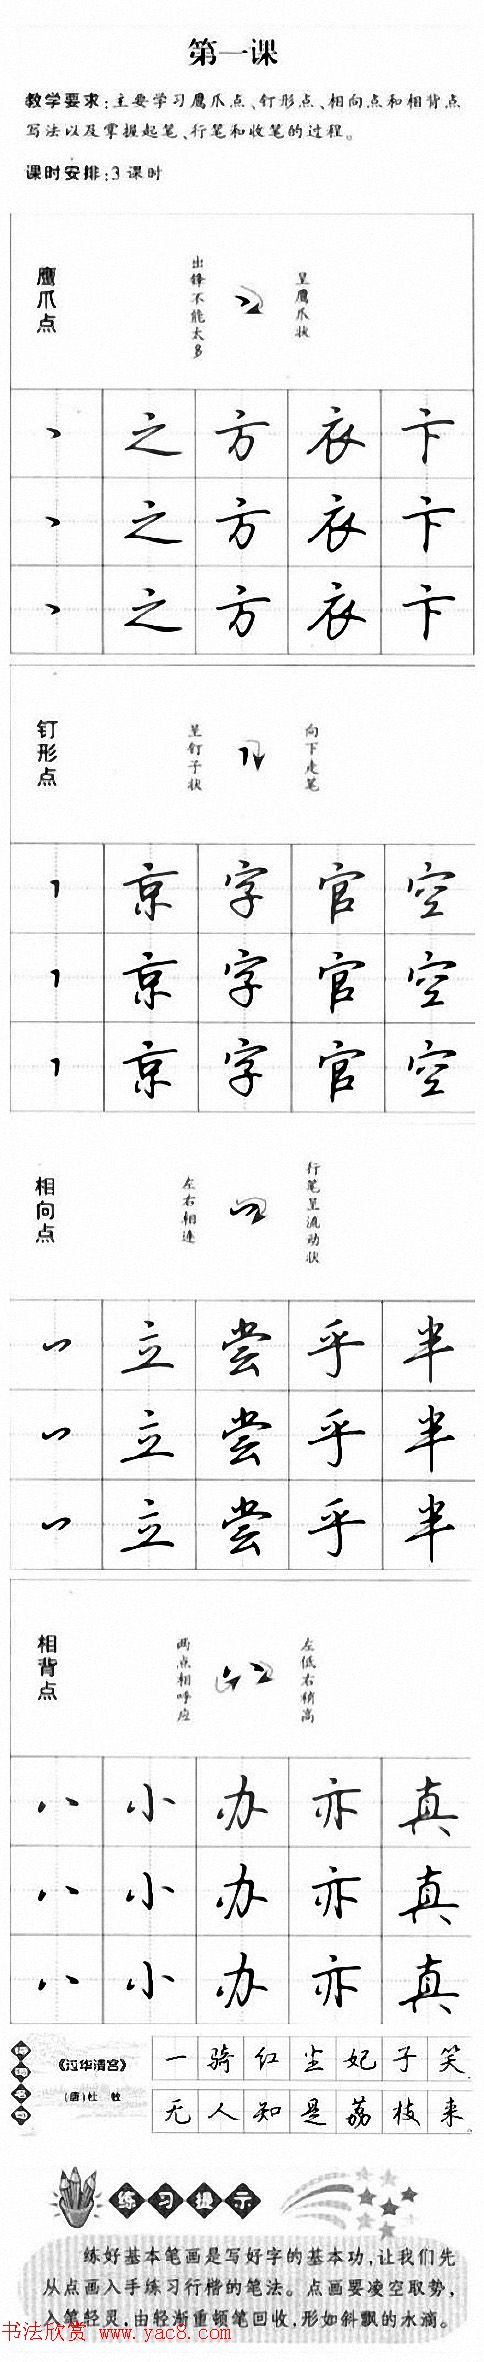 第一课
教学要求:主要学习鹰爪点、钉形点、相向点和相背点
写法以及掌握起笔、行笔和收笔的过程。
课时安排:3课时
鹰爪点
出锋不能太多
呈鹰爪状
丶 之 方 衣 卞
丶 之 方 衣 卞
丶 之 方 衣 卞
钉形点
呈钉子状
向下走笔
京 字 官 空
京 字 官 空
京 字 官 空
相向点
左右相连
行笔呈流动状
立 尝 乎 半
立 尝 乎 半
立 尝 乎 半
相背点
两点相呼应
左低右稍高
八 小 办 亦 真
八 小 办 亦 真
八 小 办 亦 真
《过华清宫》
(唐)杜 牧
一骑红尘妃子笑
无人知是荔枝来
练习提示
练好基本笔画是写好字的基本功,让我们先
从点画入手练习行楷的笔法。点画要凌空取势,
入笔轻灵,由轻渐重顿笔回收,形如斜飘的水滴。
书法欣赏 www.yac8.com